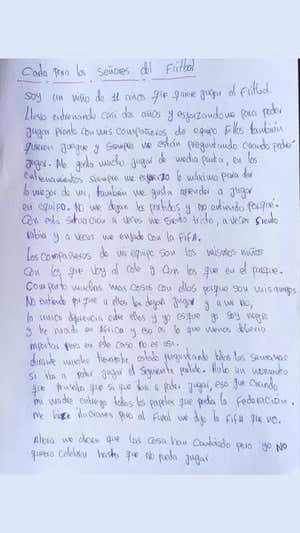 Carta para los señores del Fútbol
Soy un niño de 11 años que quiere jugar al fútbol.
Llevo entrenando casi dos años y esforzandome para poder
jugar pronto con mis compañeros de equipo. Ellos también
quieren juegue y siempre me están preguntando cuando podré
jugar. Me gusta mucho jugar de media punta, en los
entrenamientos siempre me esfuerzo lo máximo para dar
lo mejor de mi, también me gusta aprender a jugar
en equipo. No me dejan los partidos y no entiendo porque.
Con esta situación a veces me siento triste, a veces siento
rabia y a veces me enfado con la FIFA.
Los compañeros de mi equipo son los mismos niños
con los que voy al cole y con los que en el parque.
Comparto muchas mas cosas con ellos porque son mis amigos.
No entiendo por que a ellos les dejan jugar y a mi no,
la unica diferencia entre ellos y yo es que yo soy negro
y he nacido en África y eso es lo que menos deberia
importar pero en este caso no es asi.
durante mucho tiempo he estado preguntando todas las semanas
si iba a poder jugar el siguiente partido. Hubo un momento
que que si que iba a poder jugar, eso fue cuando
mi madre entrego todos los papeles que pedia la Federacion.
me hice ilusiones pero al final me dijo la FIFA que no.
Ahora me dicen que las cosa han cambiado pero yo no
quiero celebrar hasta que no pueda jugar